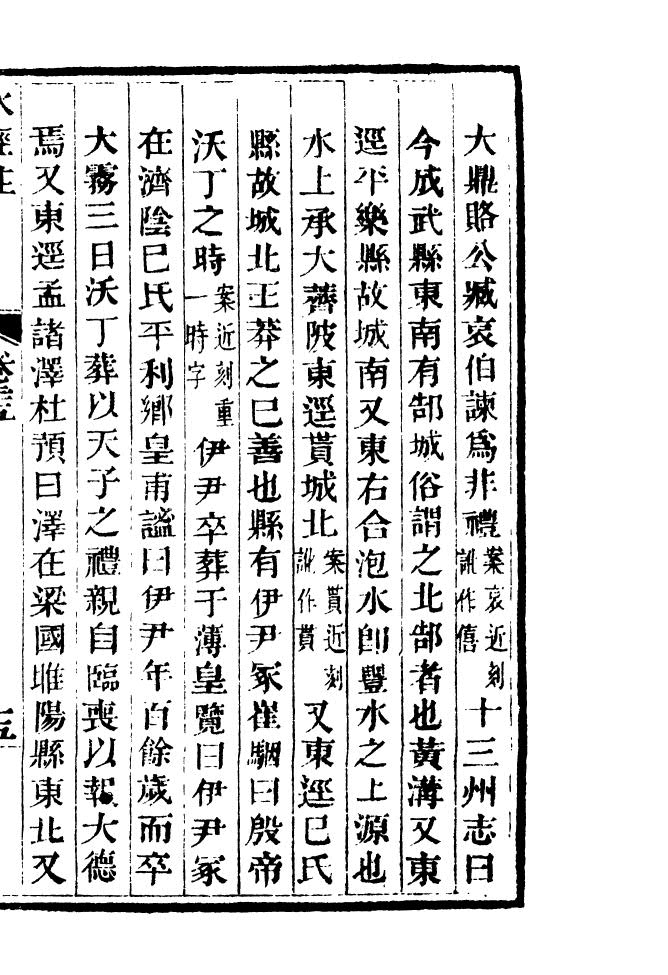 大鼎賂公臧哀伯諫爲非禮案哀近刻訛作僖十三州志曰
今成武縣東南有郜城俗謂之北郜者也黃溝又東
逕平樂縣故城南又東右合泡水卽豐水之上源也
水上承大薺陂東逕貰城北案貰近刻訛作貫又東逕巳氏
縣故城北王莽之巳善也縣有伊尹冢崔駰曰殷帝
沃丁之時案近刻重一時字伊尹卒葬于薄皇覽曰伊尹冢
在濟陰巳氏平利鄉皇甫謐曰伊尹年百餘歲而卒
大霧三日沃丁葬以天子之禮親自臨喪以報大德
焉又東逕孟諸澤杜預曰澤在梁國睢陽縣東北又
水經注